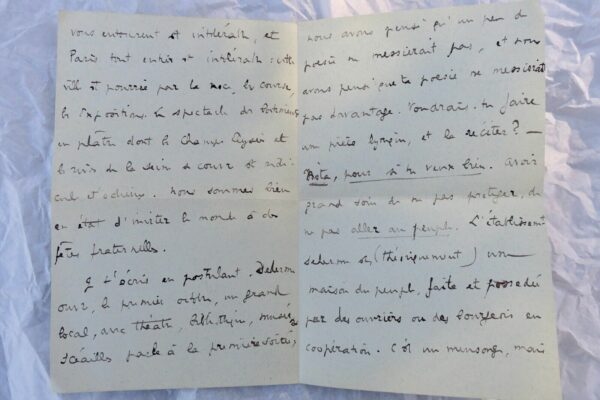 vous entourent est intolérable, et
Paris tout entier est intolérable : cette
ville est pourrie par le snob, les courses,
les Expositions. Le spectacle des
en plâtre dont les Champs Elysées et
les rives de la Seine se couvre est ridi-
cule et odieux. Nous sommes bien
en état d'inviter le monde à des
fêtes fraternelles.
Je t'écris en postulant.
ouvre, le premier octobre, un grand
local, avec théâtre, bibliothèque, musée ;
Séailles parle à la première soirée ;
nous avons pensé qu'un peu de
poésie ne messiérait pas, et nous
avons pensé que ta poésie ne messiérait
pas davantage. Voudrais-tu faire
une pièce lyrique, et la réciter ? —
Bista, pour si tu veux bien. Avoir
grand soin de ne pas protéger, de
ne pas aller au peuple. L'établissement
est (théoriquement) une
maison du peuple, faite et possédée
par des ouvriers ou des bourgeois en
coopération. C'est un mensonge, mais